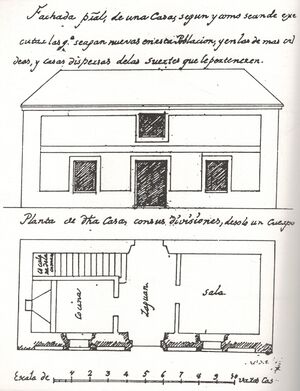 Fachada pral, de una Casa, segun y como se an de exe
cutar las q.e se agan nuevas en esta Poblacion, y en las de mas al
deas, y casas dispersas de las suertes que le pertenecen.
Planta de dha Casa, con sus divisiones, desde un Cuerpo
Cocina
Zaguan
Sala
Escala de 1 2 3 4 5 6 7 8 9 10 varas Cas